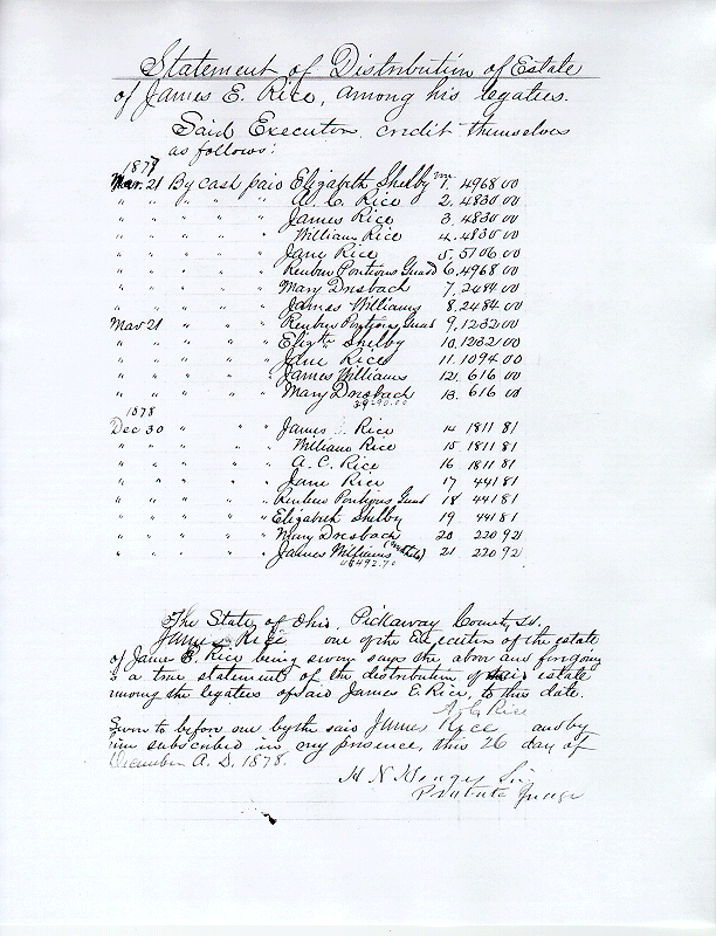 Statement of Distribution of Estate
of James E. Rice, among his legatees.
Said Executors credit themselves
as follows:
1877
Mar. 21 By cash paid Elizabeth Shelby 1. 4968 00
" " " " " A. C. Rice 2. 4830 00
" " " " " James Rice 3. 4830 00
" " " " " William Rice 4. 4830 00
" " " " " Jane Rice 5. 5106 00
" " " " " Reuben Pontious Guard 6. 4968 00
" " " " " Mary Dresbach 7. 2484 00
" " " " " James Williams 8. 2484 00
Mar 21 " " " Reuben Pontious Guard 9. 1232 00
" " " " " Elizth Shelby 10. 1232 00
" " " " " Jane Rice 11. 1094 00
" " " " " James Williams 12. 616 00
" " " " " Mary Dresbach 13. 616 00
1878
Dec 30 " " " James Rice 14 1811 81
" " " " " William Rice 15 1811 81
" " " " " A. C. Rice 16 1811 81
" " " " " Jane Rice 17 441 81
" " " " " Reuben Pontious Guard 18 441 81
" " " " " Elizabeth Shelby 19 441 81
" " " " " Mary Dresbach 20 220 92
" " " " " James Williams 21 220 92
46492.70
The State of Ohio, Pickaway County, ss.
James Rice one of the Executors of the estate
of James E. Rice being sworn says the above and foregoing
is a true statement of the distribution of said estate
among the legatees of said James E. Rice, to this date.
A. C. Rice
Sworn to before me by the said James Rice and by
him subscribed in my presence, this 26 day of
December A. D. 1878.
H N
Probate Judge